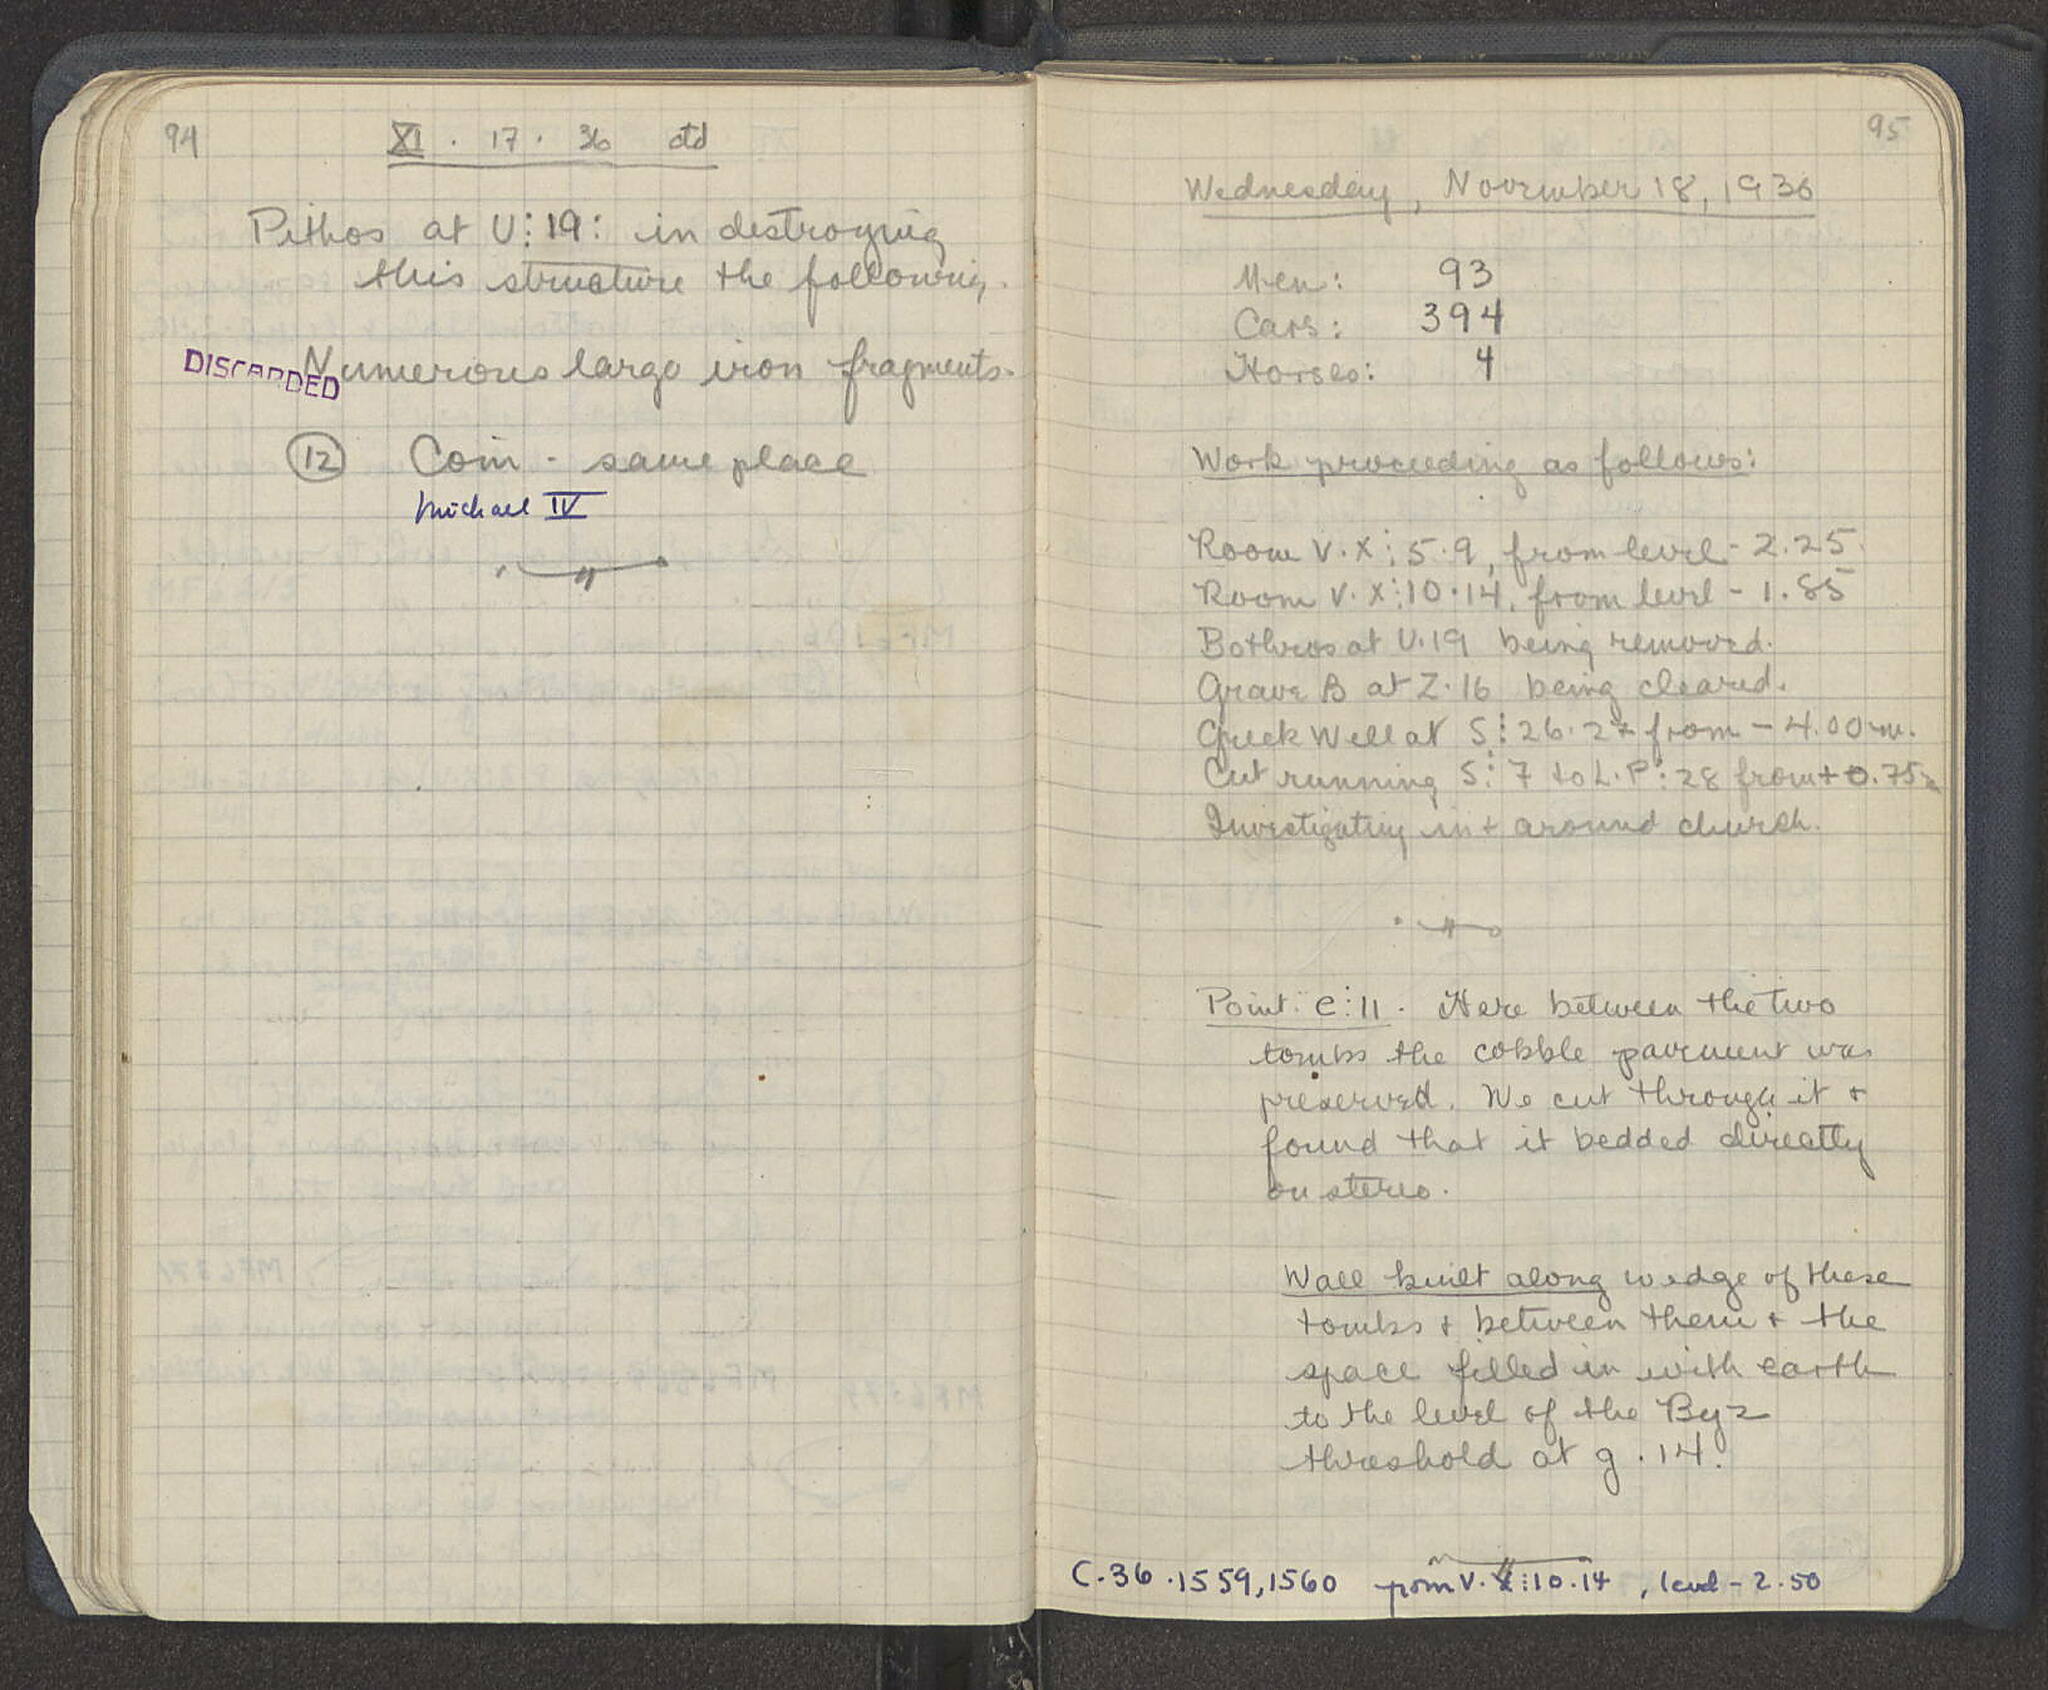 94
XI . 17 . 36 ctd
Pithos at U:19: in destroying
this structure the following.
DISCARDED
Numerous large iron fragments.
12 Coin - same place
Michael IV
95
Wednesday, November 18, 1936
Men: 93
Cars: 394
Horses: 4
Work proceeding as follows:
Room V.X:5.9, from level - 2.25.
Room V.X:10.14, from level - 1.85
Bothros at U.19 being removed.
Grave B at Z.16 being cleared.
Greek Well at S:26.27 from - 4.00 m.
Cut running S:7 to L.P:28 from + 0.75m
Investigating in & around church.
Point e:11. Here between the two
tombs the cobble pavement was
preserved. We cut through it &
found that it bedded directly
on stereo.
Wall built along w edge of these
tombs & between them & the
space filled in with earth
to the level of the Byz
threshold at g.14.
C.36.1559,1560 from V.X:10.14, level - 2.50